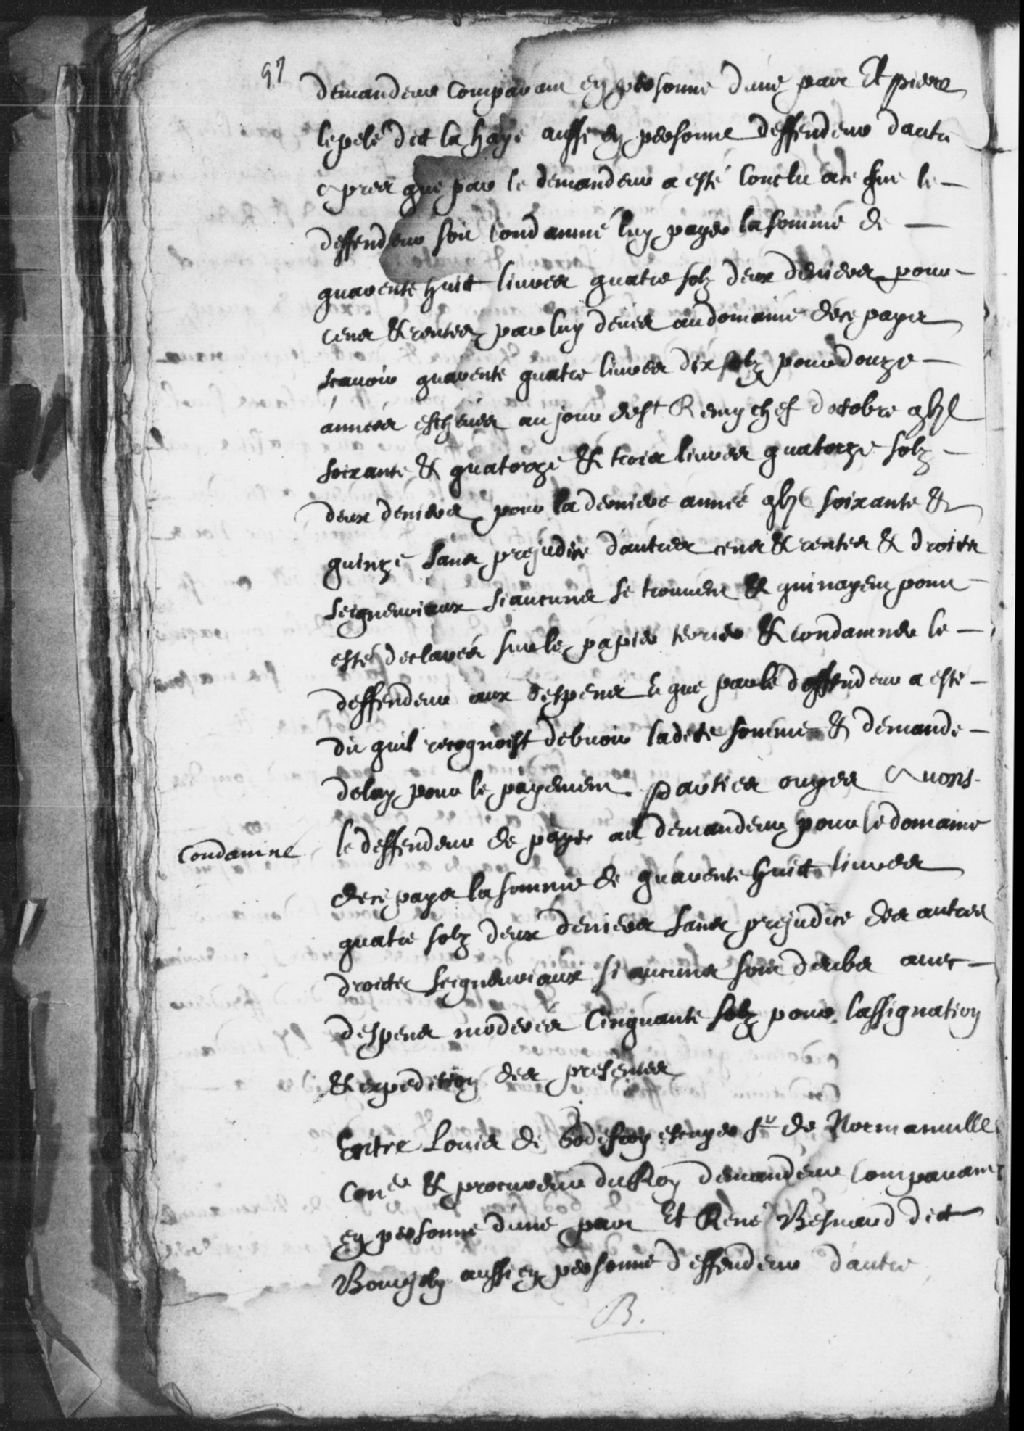 97
demandeur Comparant en personne d'une part Et pierre
lepelé dit la haye aussi en personne deffendeur dautre
apres que par le demandeur a esté Conclu ace que le
deffendeur soit Condamné luy payer la somme de
quarente huit livres quatre solz deux deniers pour
cens & rentes par luy deues au domaine dece pays
scavoir quarente quatre livres dix solz pour douze
années escheues au jour de st Remy chef doctobre gbjC
soixante & quatorze & trois livres quatorze solz
deux deniers pour la derniere année gbjC soixante &
quinze sans prejudice dautres cens & rentes & droits
seigneuriaux si aucuns se trouvent & qui nayent point
esté declarés sur le papier terrier & condamner le
deffendeur aux despens & que par le deffendeur a esté
dit quil recognoist debvoir ladite somme & demande
delay pour le payement. parties ouyes Avons
Condamné le deffendeur de payer au demandeur pour le domaine
dece pays la somme de quarente huit livres
quatre solz deux deniers sans prejudice des autres
droicts seigneuriaux si aucuns sont deubs avec
despens moderés Cinquante solz pour lassignation
& expedition des presentes
Entre Louis de Godefroy escuyer sr de Normanville
Coner & procureur du Roy demandeur Comparant
en personne dune part Et René Besnard dit
Bourjoly aussi en personne deffendeur d'autre
B.